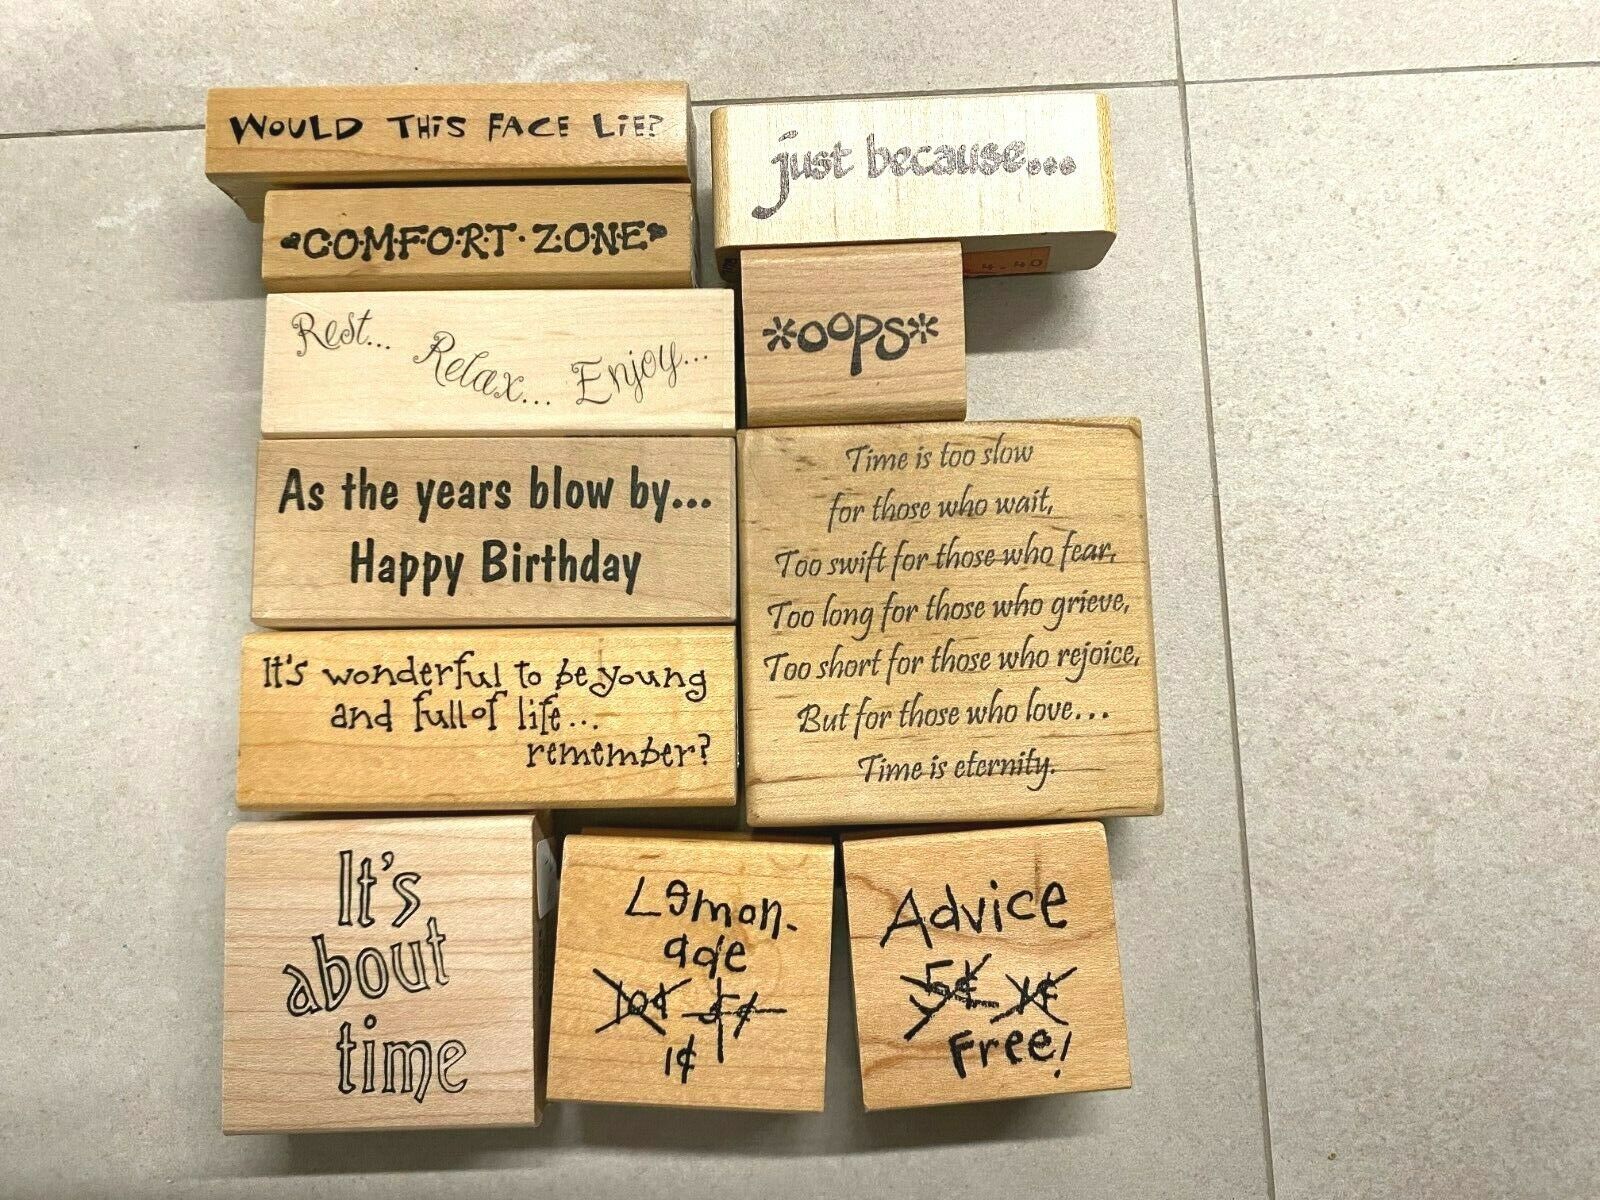 WOULD THiS FACE LiE?
C·O·M·F·O·R·T·ZONE
Rest... Relax... Enjoy...
As the years blow by...
Happy Birthday
It's wonderful to be young
and full of life...
remember?
It's
about
time
just because...
*oops*
Time is too slow
for those who wait,
Too swift for those who fear,
Too long for those who grieve,
Too short for those who rejoice,
But for those who love...
Time is eternity.
Lemon-
ade
10¢ 5¢
1¢
Advice
5¢ 1¢
Free!